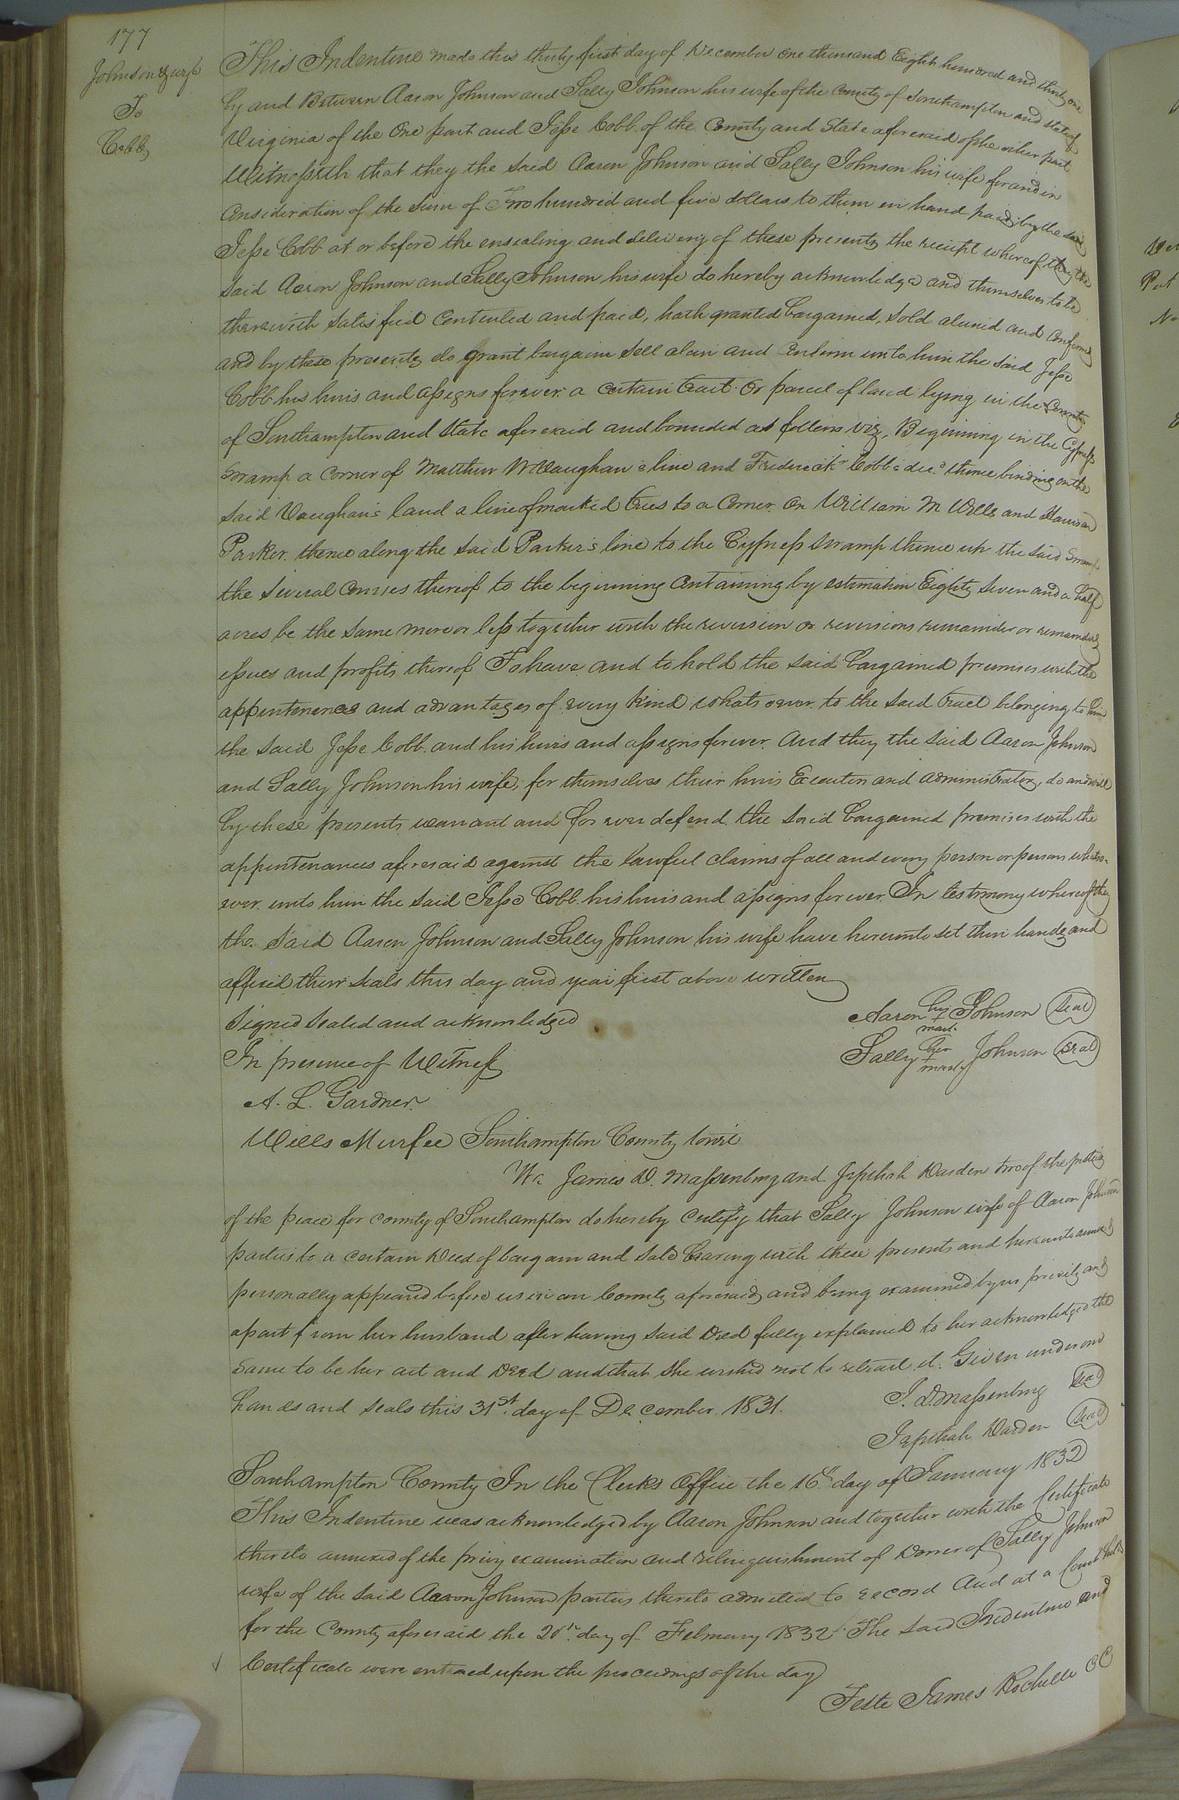 177
Johnson & wife
To
Cobb
This Indenture made this thirty first day of December one thousand Eight hundred and thirty one
by and Between Aaron Johnson and Sally Johnson his wife of the County of Southampton and State of
Virginia of the One part and Jesse Cobb of the County and State aforesaid of the other part
Witnesseth that they the said Aaron Johnson and Sally Johnson his wife for and in
Consideration of the sum of Two hundred and five dollars to them in hand paid by the said
Jesse Cobb at or before the ensealing and delivery of these presents the receipt whereof they the
said Aaron Johnson and Sally Johnson his wife do hereby acknowledge and themselves to be
therewith satisfied contented and paid, hath granted bargained, sold aliened and confirmed
and by these presents do grant bargain sell alien and Confirm unto him the said Jesse
Cobb his heirs and assigns forever a certain tract or parcel of land lying in the County
of Southampton and State aforesaid and bounded as follows viz, Beginning in the Cypress
Swamp a Corner of Matthew W Vaughan's line and Frederick Cobb's decd thence binding on the
said Vaughan's land a line of marked trees to a Corner on William M Wills and
Parker thence along the said Parker's line to the Cypress Swamp thence up the said Swamp
the several Courses thereof to the beginning Containing by estimation Eighty Seven and a half
acres be the same more or less together with the revision or revisions remainder or remainders
issues and profits thereof To have and to hold the said bargained premises with the
appurtenences and advantages of every kind whatsoever to the said tract belonging to him
the said Jesse Cobb and his heirs and assigns forever And they the said Aaron Johnson
and Sally Johnson his wife, for themselves their heirs Executors and administrators, do and will
by these presents warrant and forever defend the said bargained premises with the
appurtenances aforesaid against the lawful claims of all and every person or persons whatso-
ever unto him the said Jesse Cobb his heirs and assigns forever In testimony whereof they
the said Aaron Johnson and Sally Johnson his wife have hereunto set their hands and
affixed their seals this day and year first above written
Signed Sealed and acknowledged Aaron his + mark Johnson (Seal)
In presence of Witness Sally her + mark Johnson (Seal)
A. L. Gardner
Wills Murfee Southampton County towit
We James D. Massenburg and Jephthah Darden two of the justices
of the peace for county of Southampton do hereby certify that Sally Johnson wife of Aaron Johnson
parties to a certain Deed of bargain and sale bearing with these presents and hereunto annexed
personally appeared before us in our County aforesaid and being examined by us privily and
apart from her husband after having said Deed fully explained to her acknowledged the
same to be her act and Deed and that she wished not to retract it. Given under our
hands and seals this 31st day of December 1831. J. D Massenburg (Seal)
Jephthah Darden (Seal)
Southampton County In the Clerks Office the 16th day of January 1832
This Indenture was acknowledged by Aaron Johnson and together with the Certificate
thereto annexed of the privy examination and relinquishment of Dower of Sally Johnson
wife of the said Aaron Johnson parties thereto admitted to record And at a Court held
for the County aforesaid the 20th day of February 1832 The said Indenture and
Certificate were entered upon the proceedings of the day
Teste James Rochelle CC